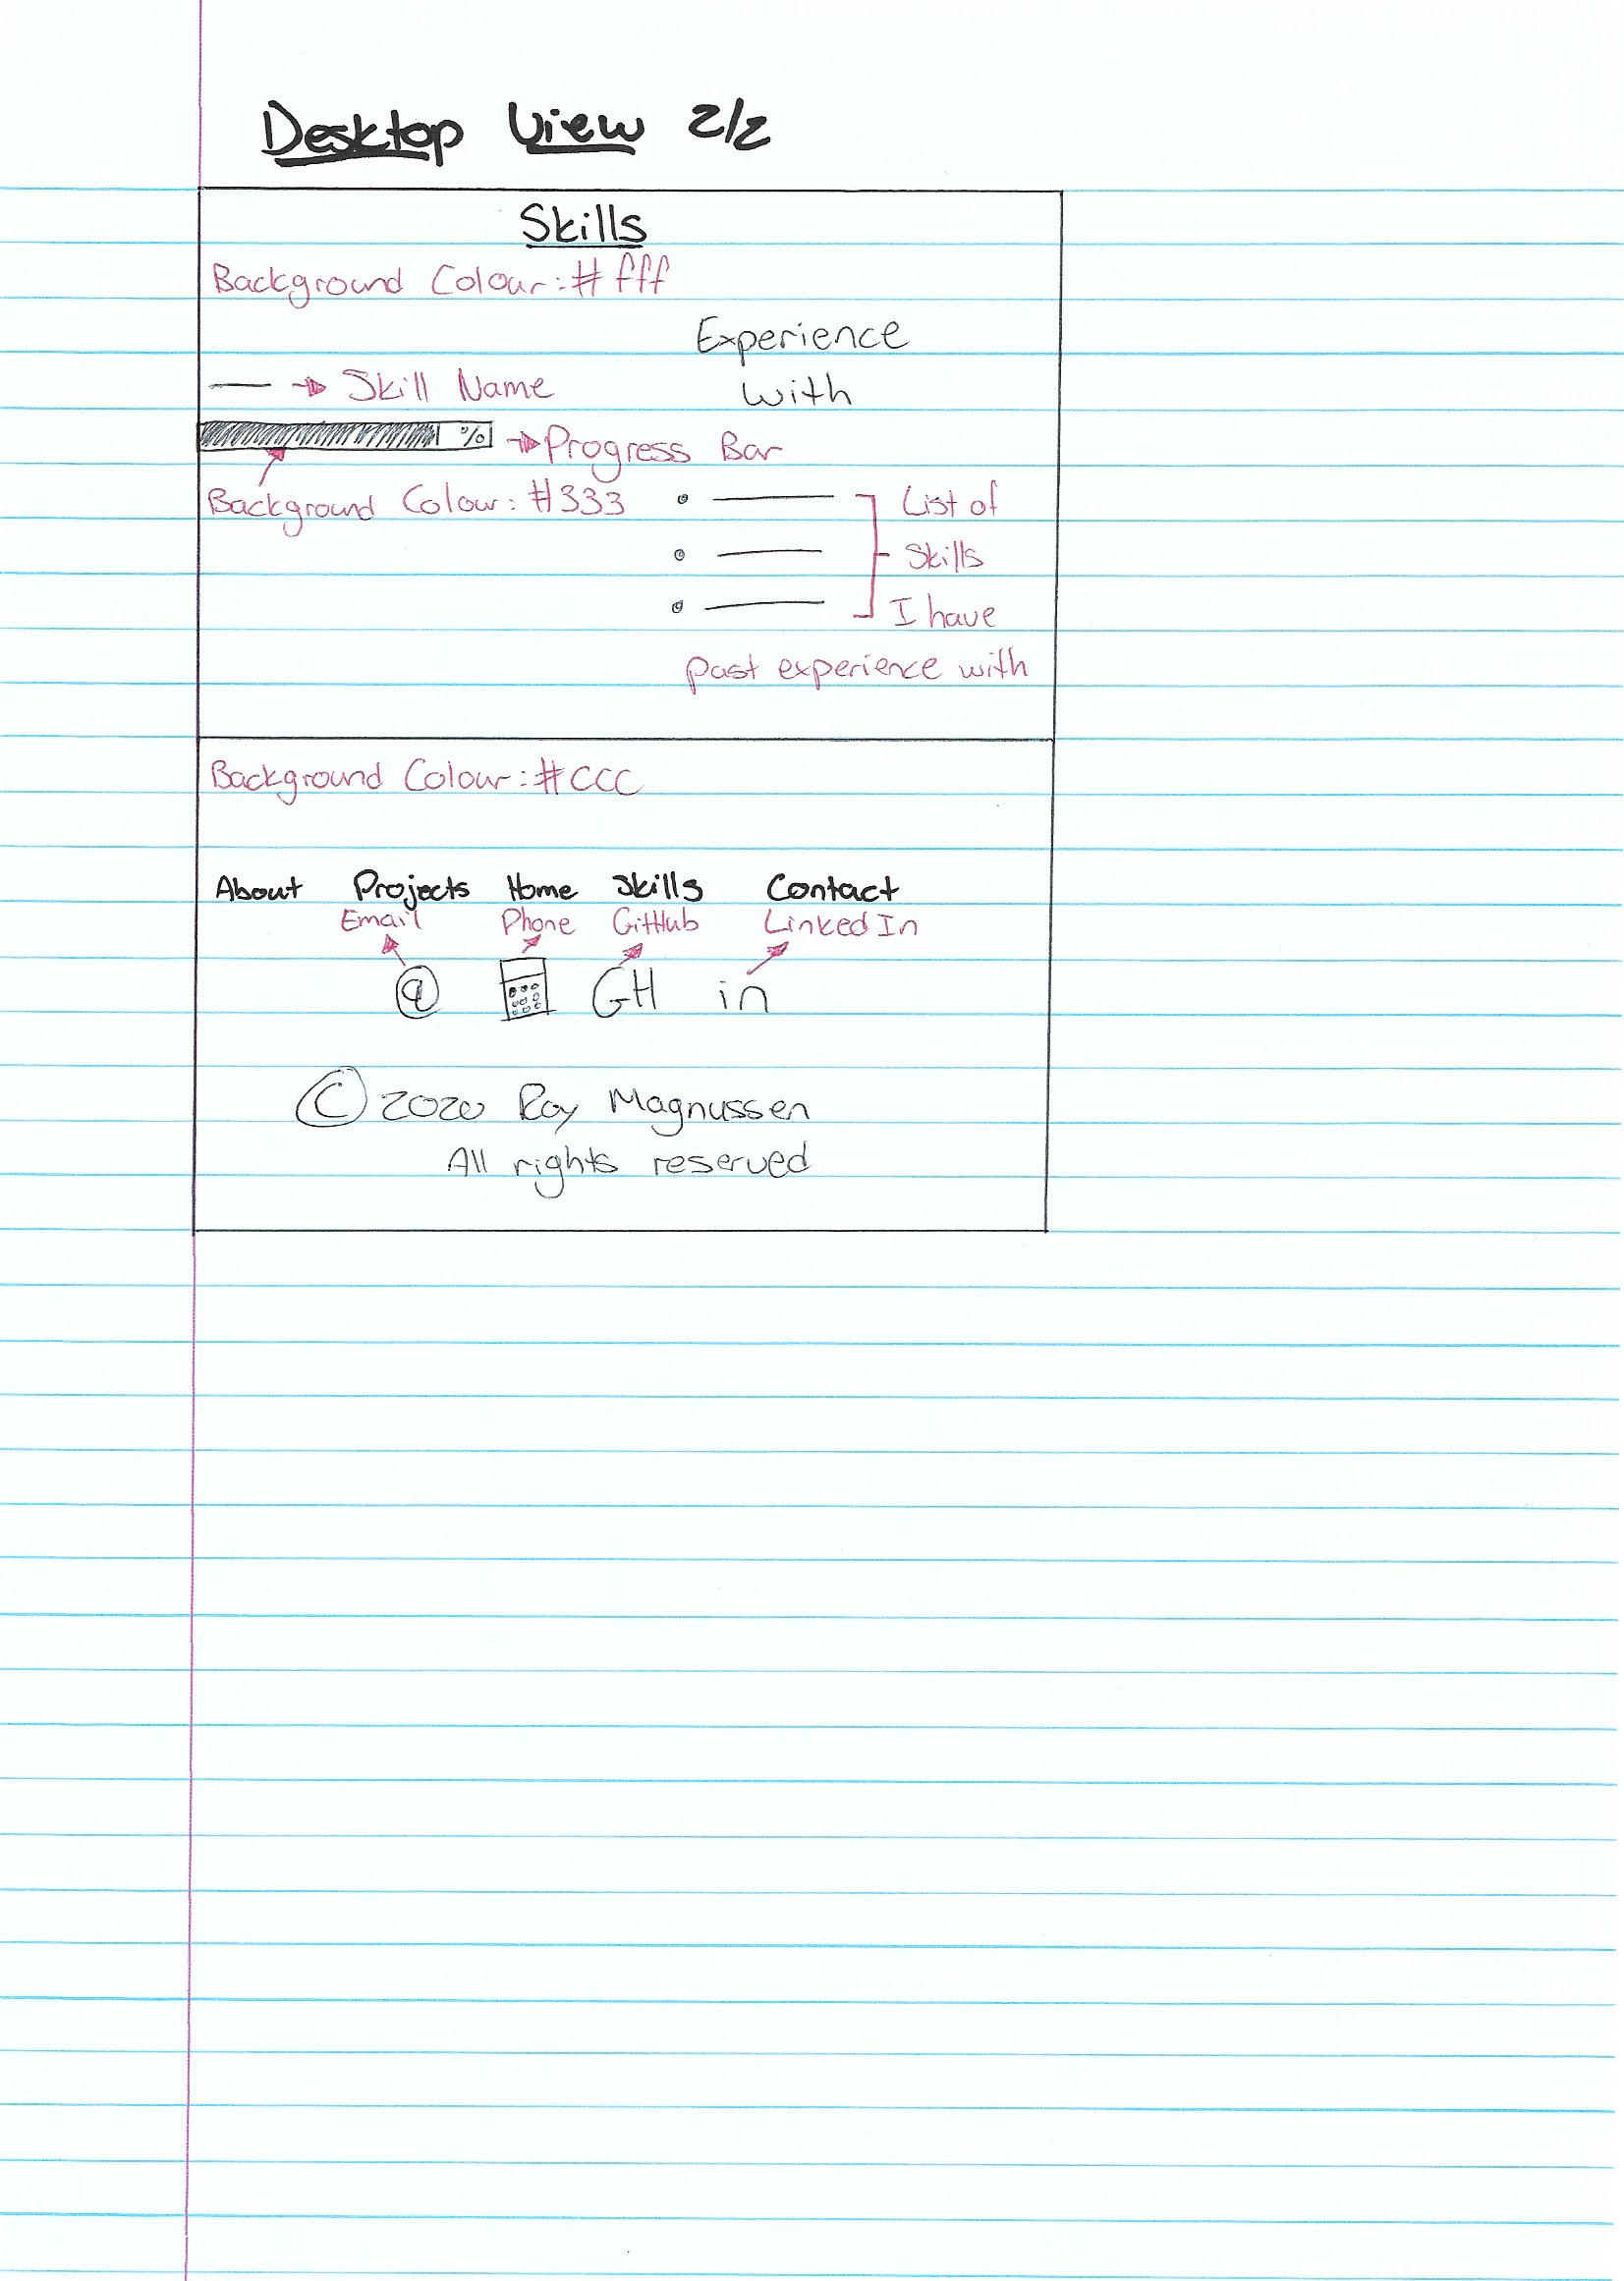 Desktop View 2/2
Skills
Background Colour: #fff
Experience
with
Skill Name
%
Progress Bar
Background Colour: #333
List of
Skills
I have
past experience with
Background Colour: #CCC
About Projects Home Skills Contact
Email Phone GitHub Linked In
@ GH in
© 2020 Roy Magnussen
All rights reserved